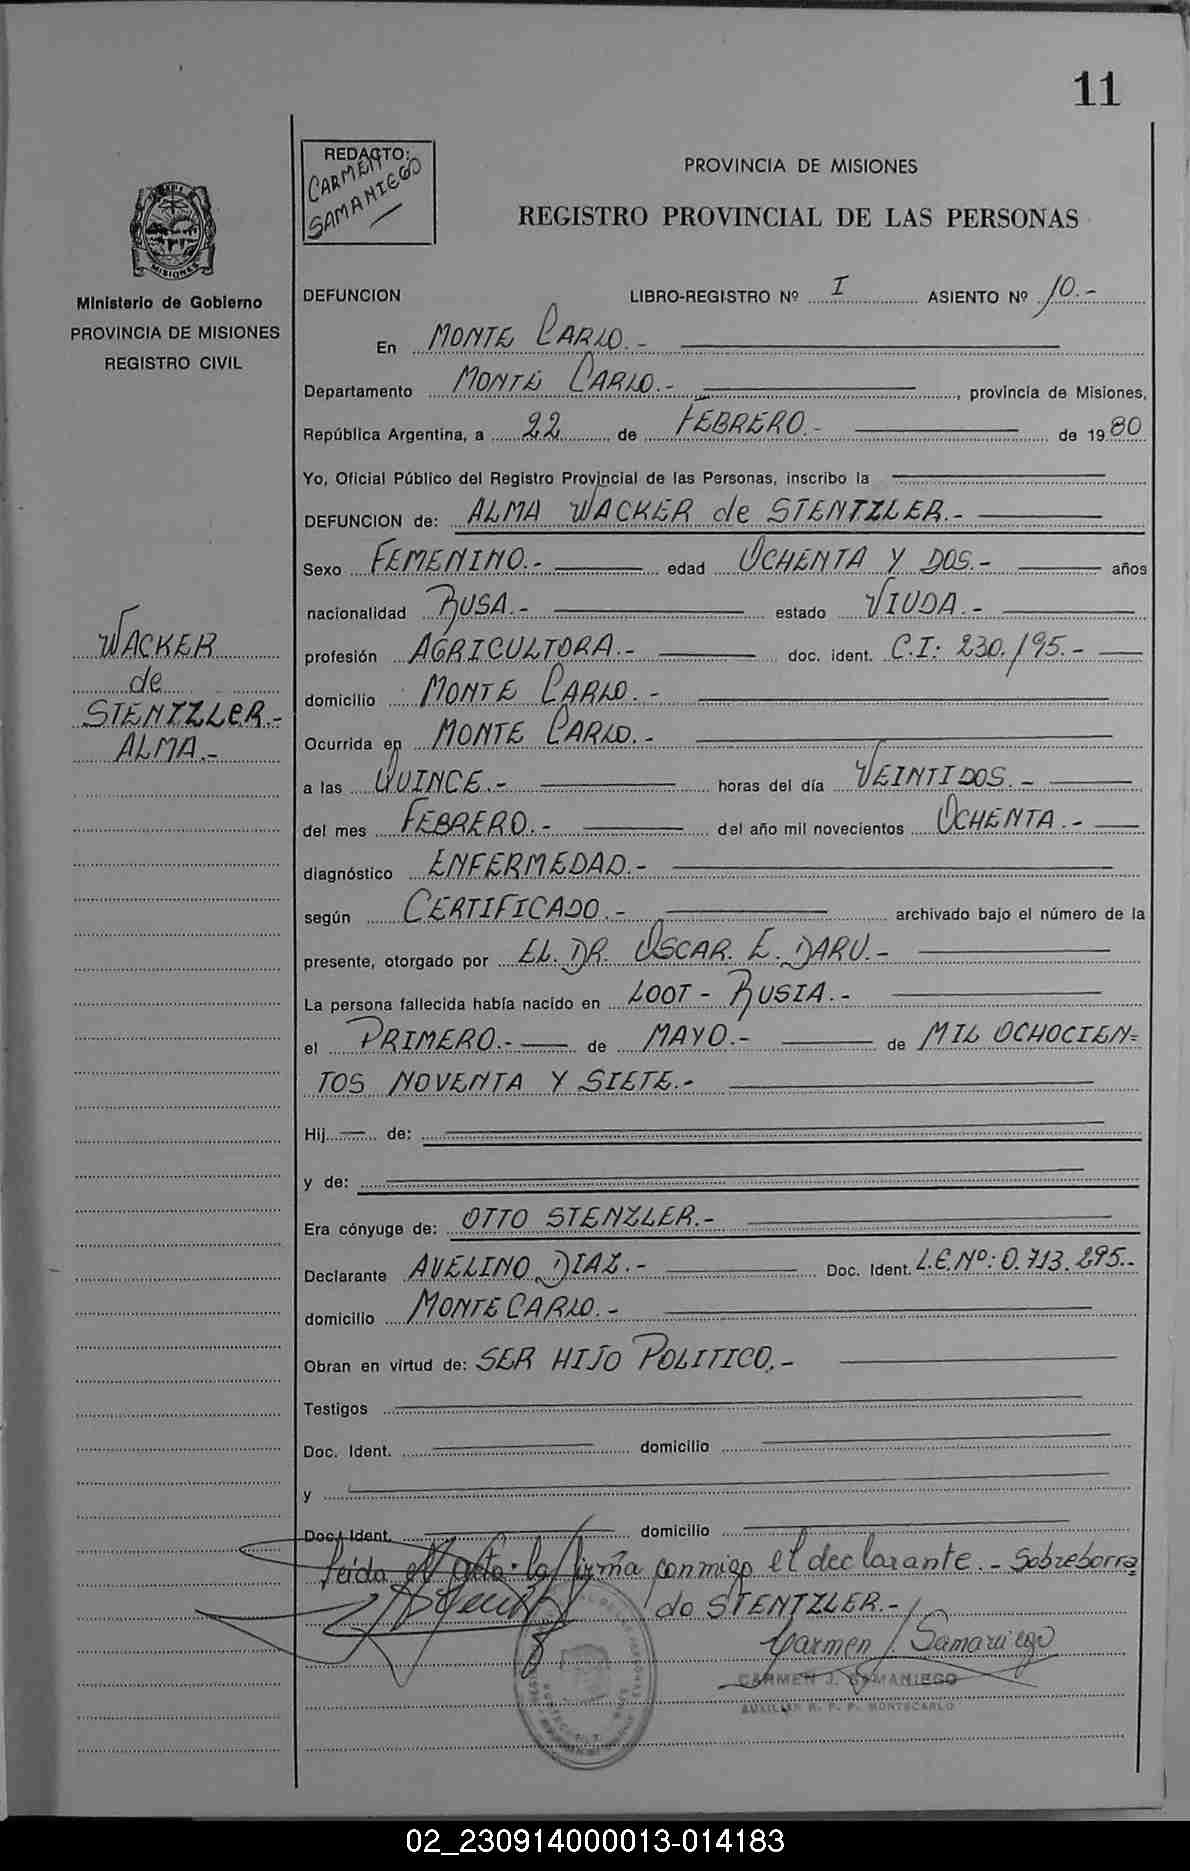 11
REDACTO:
CARMEN
SAMANIEGO
PROVINCIA DE MISIONES
REGISTRO PROVINCIAL DE LAS PERSONAS
MISIONES
Ministerio de Gobierno
PROVINCIA DE MISIONES
REGISTRO CIVIL
DEFUNCION LIBRO-REGISTRO Nº I ASIENTO Nº 10.-
En MONTE CARLO.-
Departamento MONTE CARLO.- , provincia de Misiones,
República Argentina, a 22 de FEBRERO.- de 1980
Yo, Oficial Público del Registro Provincial de las Personas, inscribo la
DEFUNCION de: ALMA WACKER de STENTZLER.-
Sexo FEMENINO.- edad OCHENTA Y DOS.- años
nacionalidad RUSA.- estado VIUDA.-
WACKER
de
STENTZLER.-
ALMA.-
profesión AGRICULTORA.- doc. ident. C.I: 230.195.-
domicilio MONTE CARLO.-
Ocurrida en MONTE CARLO.-
a las QUINCE.- horas del día VEINTIDOS.-
del mes FEBRERO.- del año mil novecientos OCHENTA.-
diagnóstico ENFERMEDAD.-
según CERTIFICADO.- archivado bajo el número de la
presente, otorgado por EL DR. OSCAR. E. DARU.-
La persona fallecida había nacido en LOOT - RUSIA.-
el PRIMERO.- de MAYO.- de MIL OCHOCIEN=
TOS NOVENTA Y SIETE.-
Hij de:
y de:
Era cónyuge de: OTTO STENZLER.-
Declarante AVELINO DIAZ.- Doc. Ident. L.E.Nº: 0.713.295.-
domicilio MONTE CARLO.-
Obran en virtud de: SER HIJO POLITICO.-
Testigos
Doc. Ident. domicilio
y
Doc. Ident. domicilio
Leida el acta. la firma conmigo el declarante.- Sobreborra
do STENTZLER.-
Carmen J. Samaniego
CARMEN J. SAMANIEGO
AUXILIAR R. P. P. MONTECARLO
02_230914000013-014183